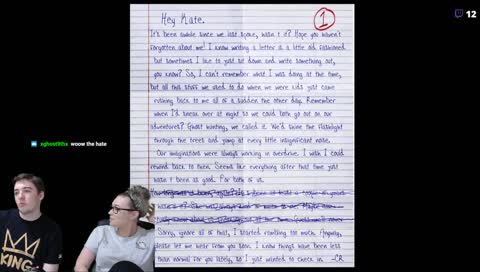 12
Hey Kate.
1
It's been awhile since we last spoke, hasn't it? Hope you haven't
forgotten about me! I know writing a letter is a little old fashioned
but sometimes I like to just sit down and write something out,
you know? So, I can't remember what I was doing at the time,
but all this stuff we used to do when we were kids just came
rushing back to me all of a sudden the other day. Remember
when I'd sneak over at night so we could both go out on our
adventures? Ghost hunting, we called it. We'd shine the flashlight
through the trees and jump at every little insignificant noise.
Our imaginations were always working in overdrive. I wish I could
rewind back to then. Seems like everything after that time just
hasn't been as good. For both of us.
xghost9thx woow the hate
Sorry, ignore all of that, I started rambling too much. Anyway,
please let me hear from you soon. I know things have been less
than normal for you lately, so I just wanted to check in. -CR
KING